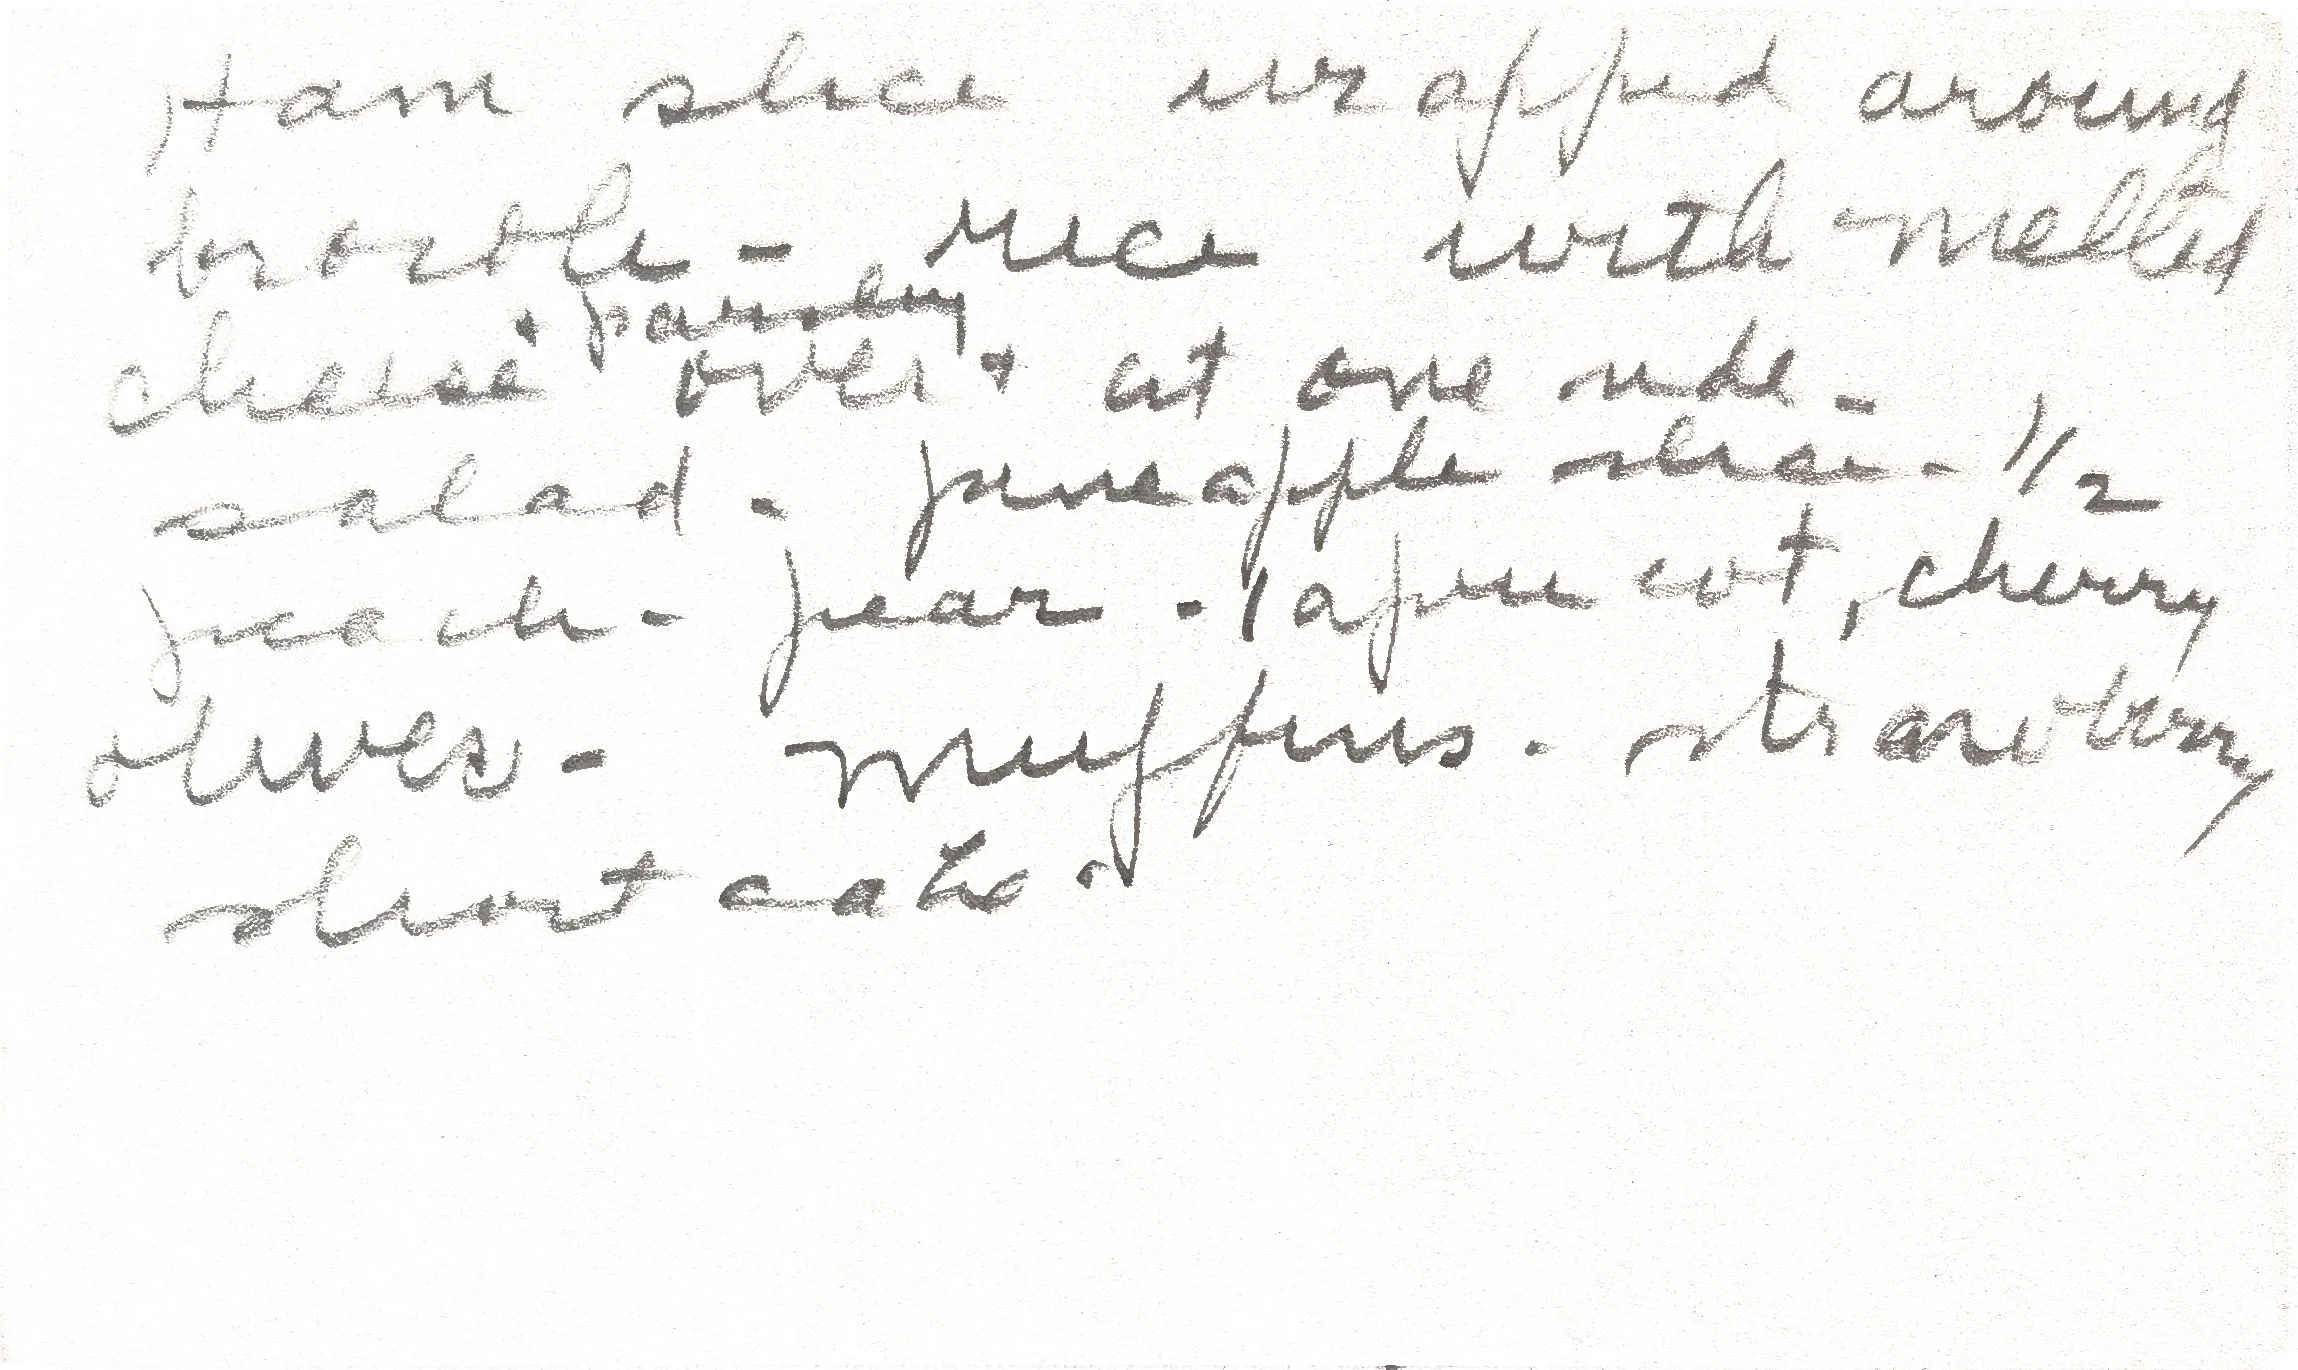 Ham slice wrapped around
- rice with melted
cheese + parsley over + at one side -
salad - pineapple slice - 1/2
peach - pear - 1 apricot, cherry
olives - muffins - strawberry
short cake.